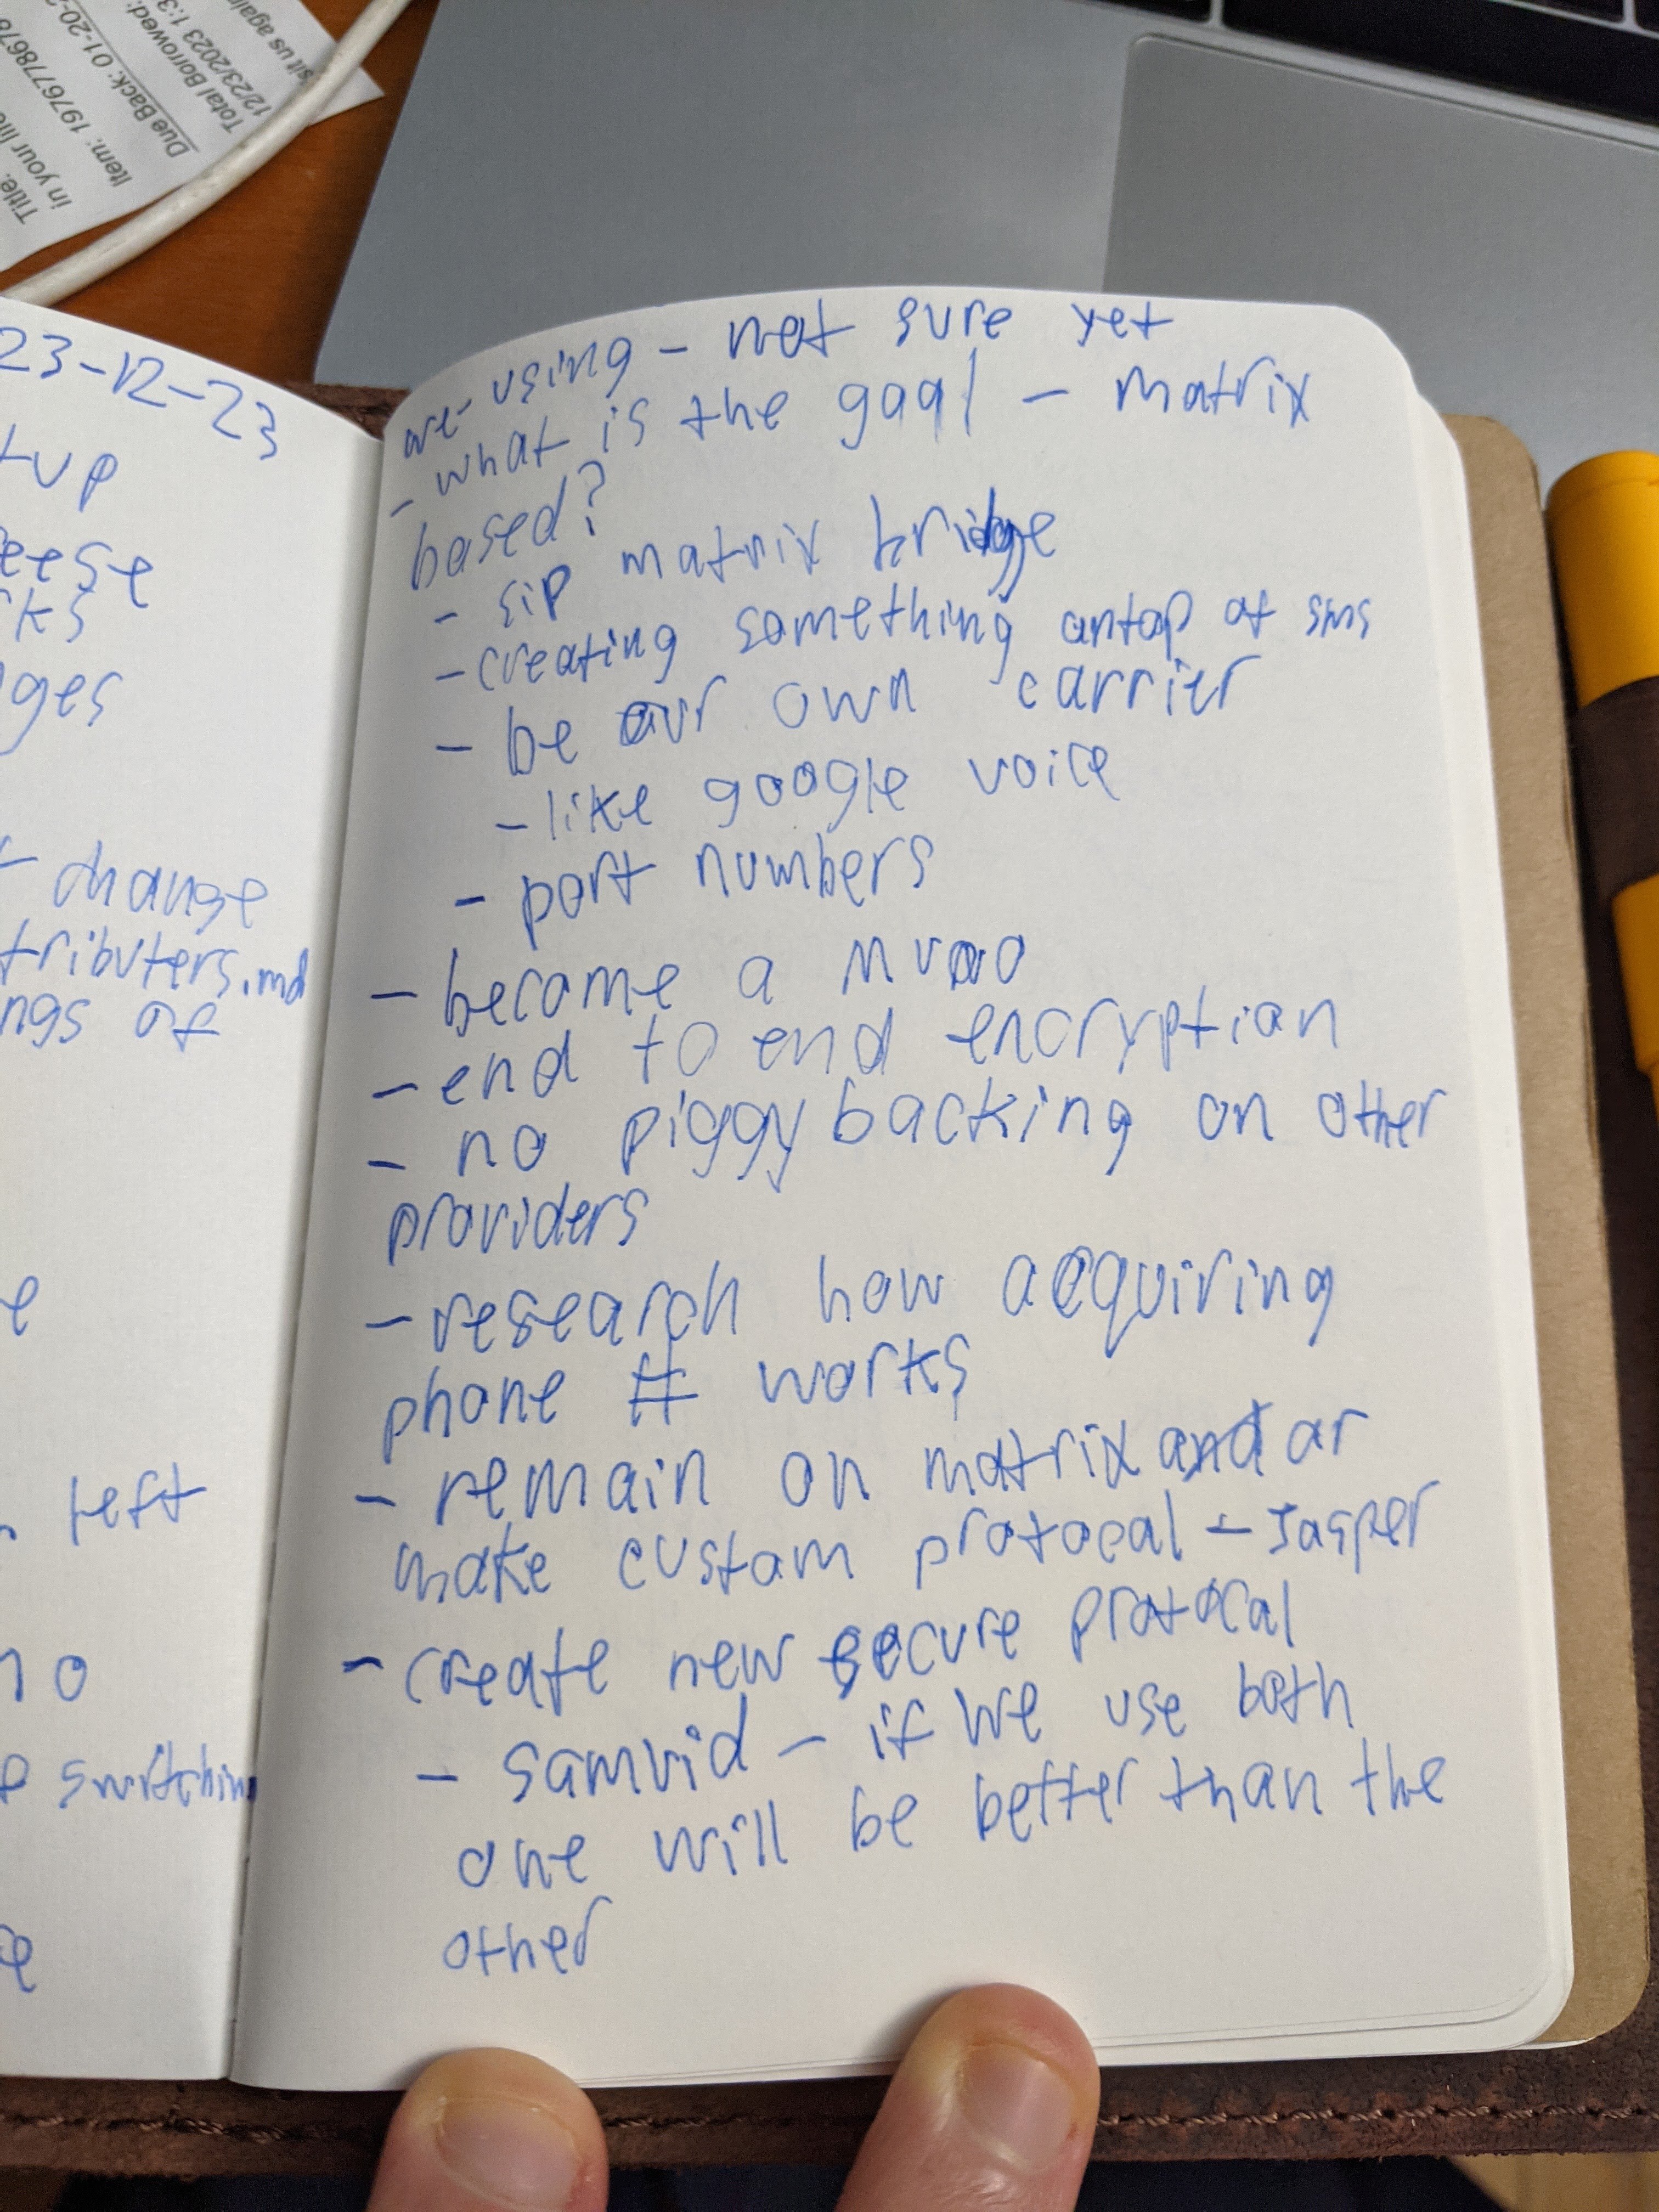 Title:
in your life
Item: 1976778678
Due Back: 01-20-
Total Borrowed:
12/23/2023 1:3
sit us again
23-12-23
tup
eese
cks
ges
- change
tributers.md
ngs of
e
left
no
e switching
e
we using - not sure yet
- what is the goal - matrix
based?
- sip matrix bridge
- creating something ontop of sms
- be our own carrier
- like google voice
- port numbers
- become a mvno
- end to end encryption
- no piggybacking on other
providers
- research how acquiring
phone # works
- remain on matrix and or
make custom protocol - Jasper
- create new secure protocol
- samvid - if we use both
one will be better than the
other